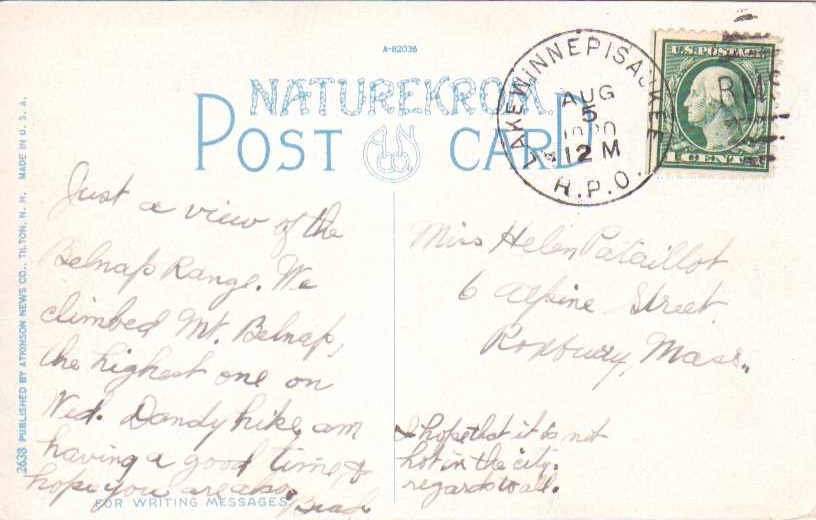 A-82036
NATUREKROM
POST CARD
LAKE WINNEPISAUKEE
AUG
5
12 M
R.P.O.
RMS
U.S. POSTAGE
1 CENT
Just a view of the
Belnap Range. We
climbed Mt. Belnap,
the highest one on
Wed. Dandy hike, am
having a good time, &
hope you are also.
Miss Helen Pataillot
6 Alpine Street.
Roxbury, Mass.,
I hope that it is not
hot in the city.
regards to all.
FOR WRITING MESSAGES
2638 PUBLISHED BY ATKINSON NEWS CO., TILTON, N. H. MADE IN U. S. A.